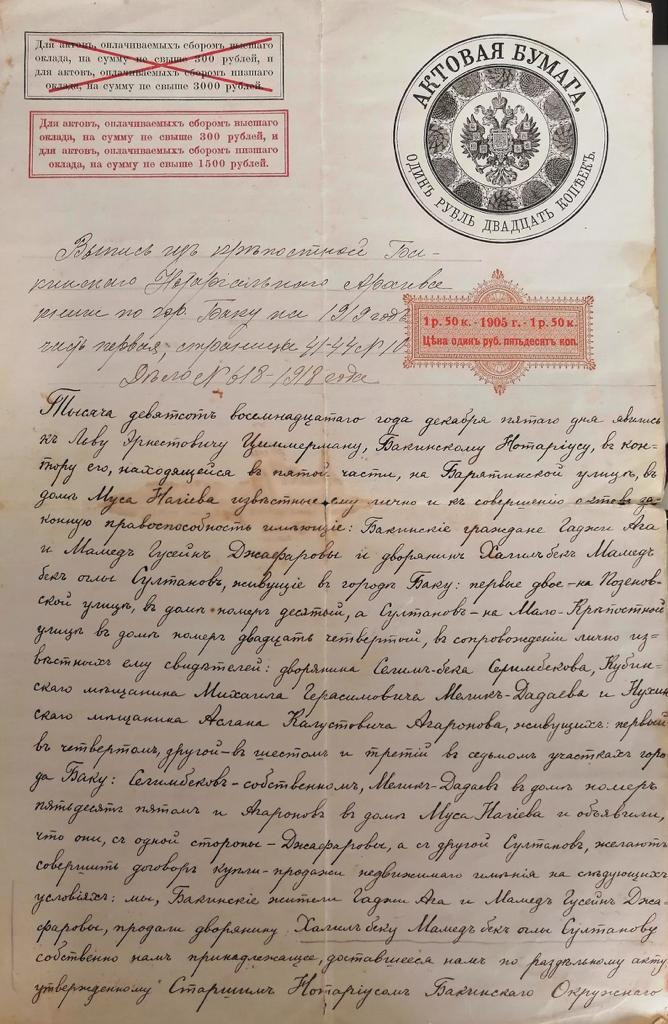 Для актовъ, оплачиваемыхъ сборомъ высшаго
оклада, на сумму не свыше 300 рублей, и
для актовъ, оплачиваемыхъ сборомъ низшаго
оклада, на сумму не свыше 3000 рублей.
Для актовъ, оплачиваемыхъ сборомъ высшаго
оклада, на сумму не свыше 300 рублей, и
для актовъ, оплачиваемыхъ сборомъ низшаго
оклада, на сумму не свыше 1500 рублей.
АКТОВАЯ БУМАГА.
ОДИНЪ РУБЛЬ ДВАДЦАТЬ КОПѢЕКЪ.
Выпись изъ крѣпостной Ба-
кинскаго Нотаріальнаго Архива
книги по гор. Баку на 1919 годъ
часть первая, страницы 41-44 № 10
Дѣло № 618-1918 года
1 р. 50 к. - 1905 г. - 1 р. 50 к.
Цѣна одинъ руб. пятьдесятъ коп.
Тысяча девятсотъ восемнадцатаго года декабря пятаго дня явились
къ Льву Эрнестовичу Циммерману, Бакинскому Нотаріусу, въ кон-
тору его, находящейся въ пятой части, на Барятинской улицѣ, въ
домѣ Муса Нагіева извѣстные ему лично и къ совершенію актовъ за-
конную правоспособность имѣющіе: Бакинскіе граждане Гаджи Ага
и Мамедъ Гусейнъ Джафаровы и дворянинъ Халилъ бекъ Мамедъ
бекъ оглы Султановъ, живущіе въ городѣ Баку: первые двое - на
ской улицѣ, въ домѣ номеръ десятый, а Султановъ - на Мало-Крѣпостной
улицѣ въ домѣ номеръ двадцать четвертой, въ сопровожденіи лично из-
вѣстныхъ ему свидѣтелей: дворянина Селимъ-бека Селимбекова, Кубин-
скаго мѣщанина Михаила Герасимовича Меликъ-Дадаева и Нухин
скаго мѣщанина Аслана Агаронова, живущихъ: первый
въ четвертомъ, другой - въ шестомъ и третій въ седьмомъ участкахъ горо
да Баку: Селимбековъ - собственномъ, Меликъ-Дадаевъ въ домѣ номеръ
пятьдесятъ пятомъ и Агароновъ въ домѣ Муса Нагіева и объявили,
что они, съ одной стороны - Джафаровы, а съ другой Султановъ, желаютъ
совершить договоръ купли-продажи недвижимаго имѣнія на слѣдующихъ
условіяхъ: мы, Бакинскіе жители Гаджи Ага и Мамедъ Гусейнъ Джа-
фаровы, продали дворянину Халилъ беку Мамедъ бекъ оглы Султанову
собственно намъ принадлежащее, доставшееся намъ по раздѣльному акту
утвержденному Старшимъ Нотаріусомъ Бакинскаго Окружнаго